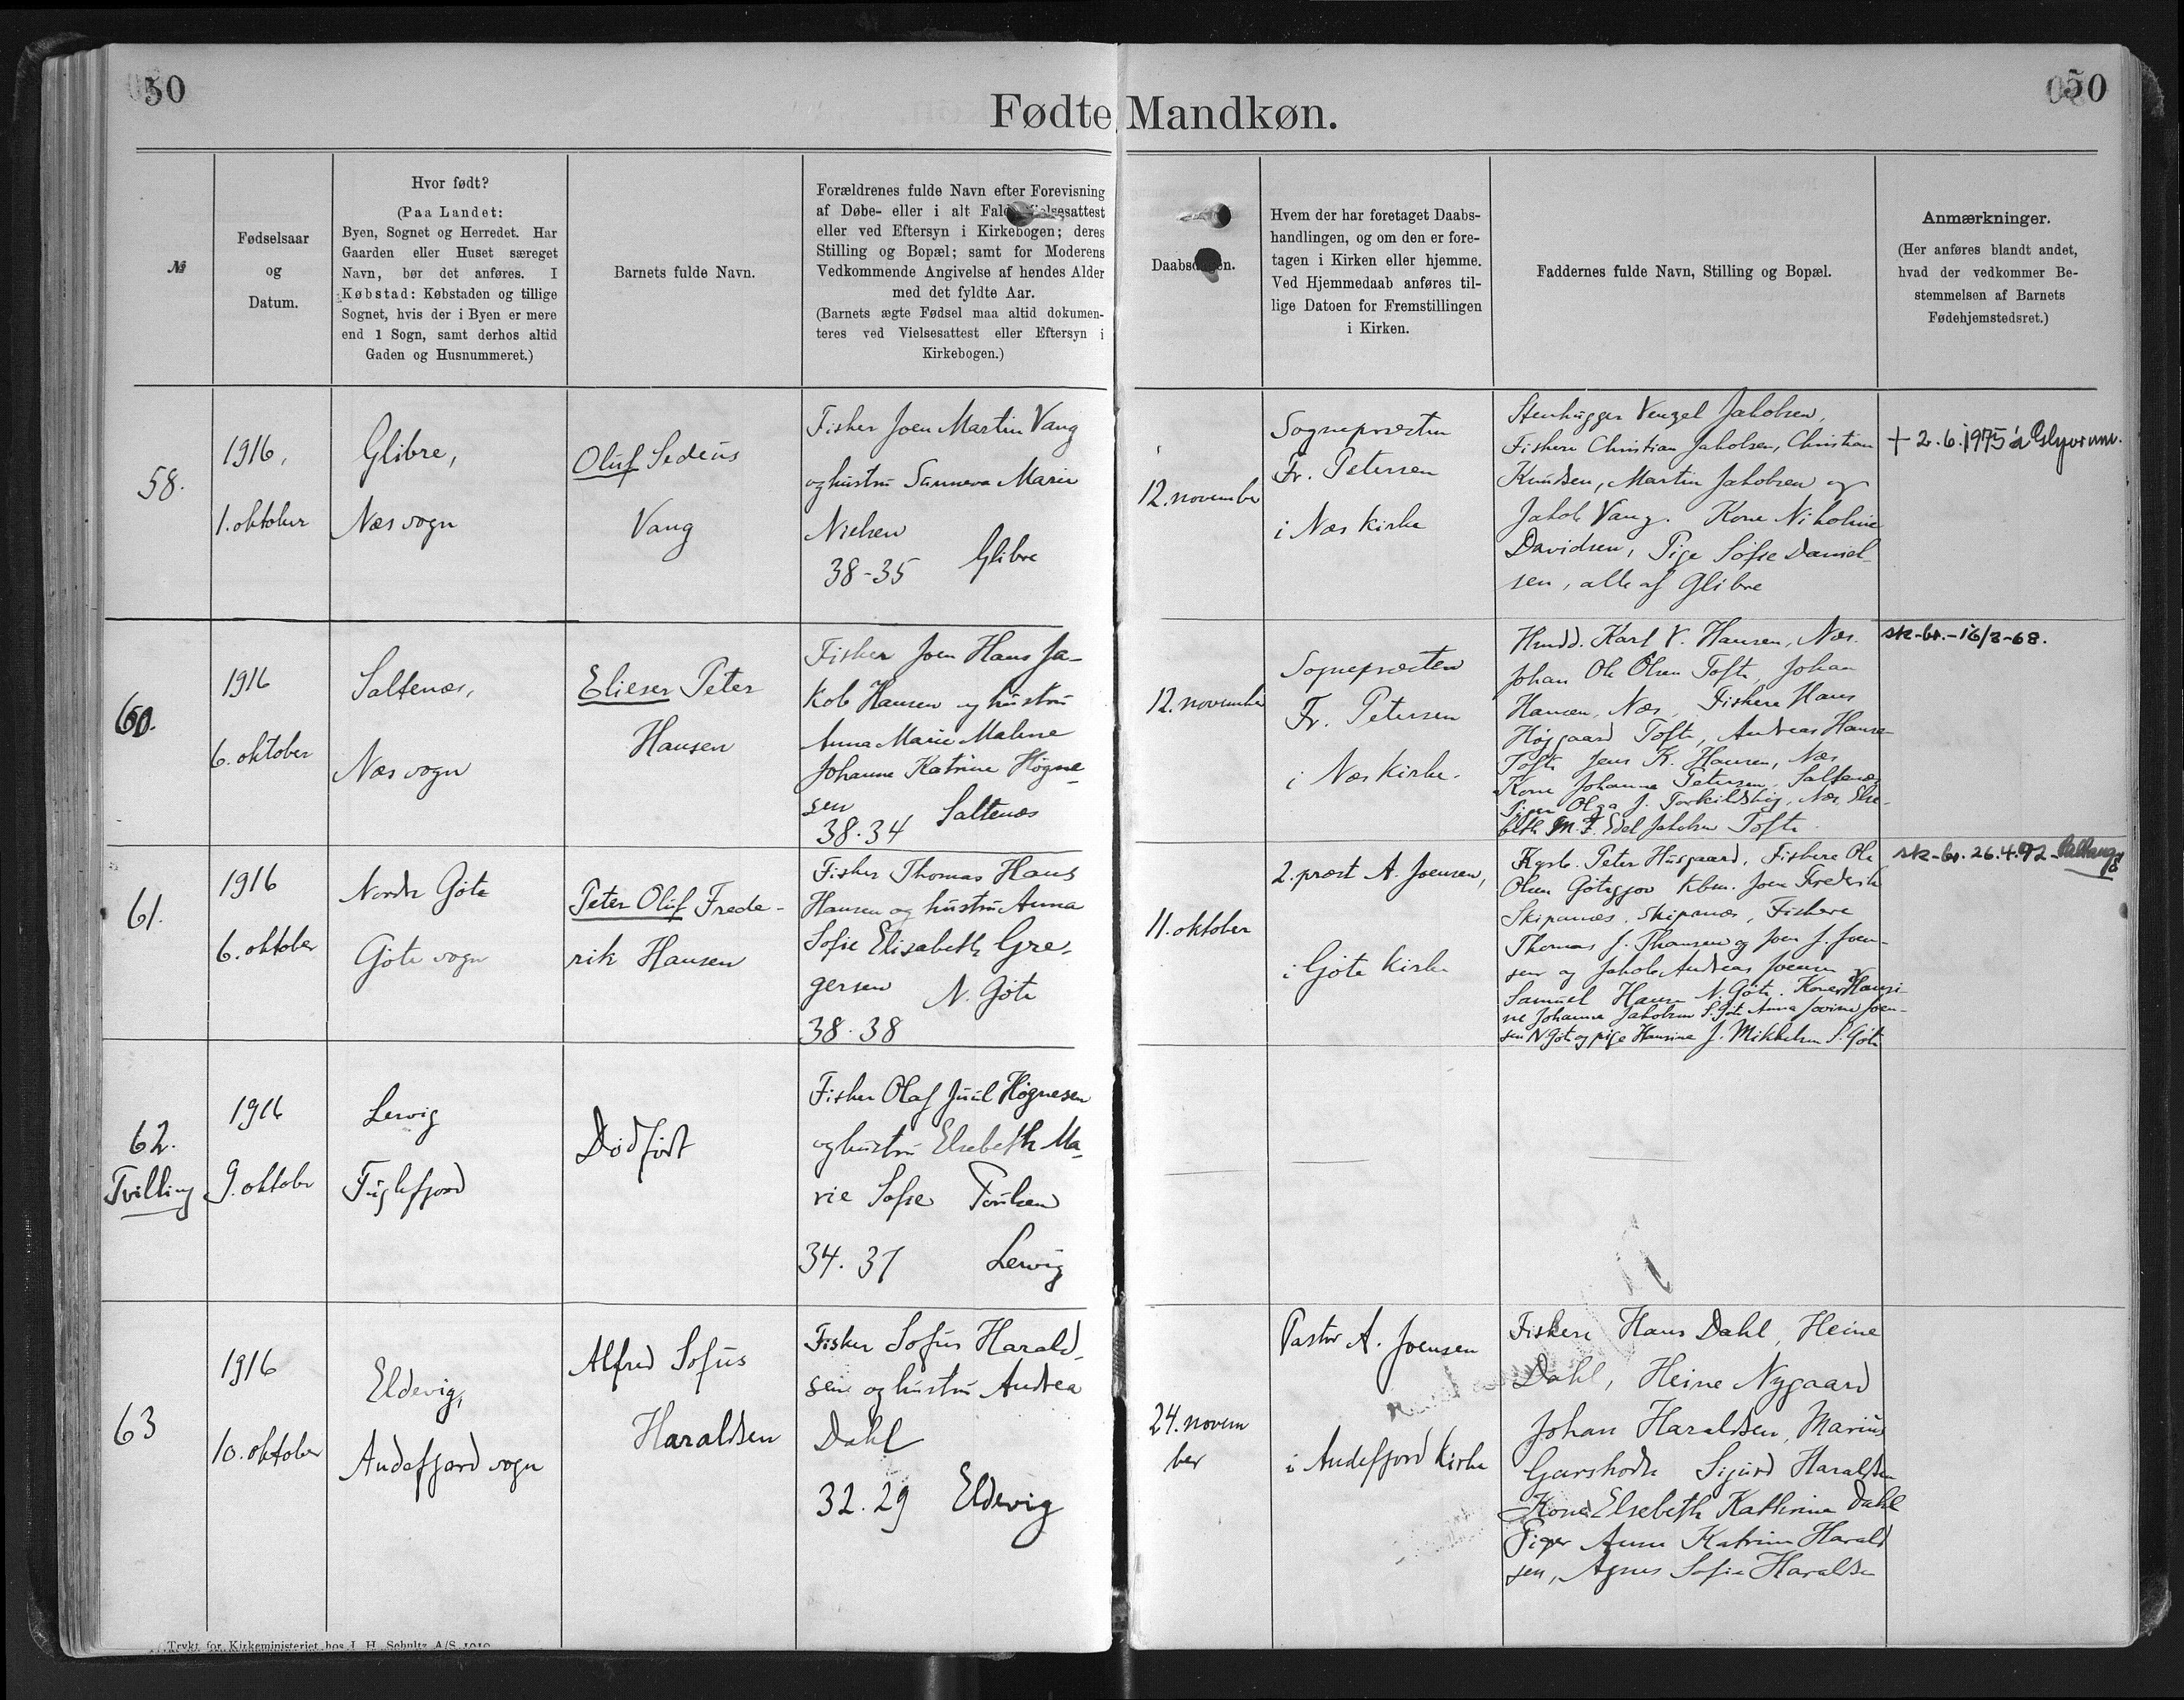 50
50
Fødte Mandkøn.
№
Fødselsaar
og
Datum.
Hvor født?
(Paa Landet:
Byen, Sognet og Herredet. Har
Gaarden eller Huset særeget
Navn, bør det anføres. I
Købstad: Købstaden og tillige
Sognet, hvis der i Byen er mere
end 1 Sogn, samt derhos altid
Gaden og Husnummeret.)
Barnets fulde Navn.
Forældrenes fulde Navn efter Forevisning
af Døbe- eller i alt Fald Vielsesattest
eller ved Eftersyn i Kirkebogen; deres
Stilling og Bopæl; samt for Moderens
Vedkommende Angivelse af hendes Alder
med det fyldte Aar.
(Barnets ægte Fødsel maa altid dokumen-
teres ved Vielsesattest eller Eftersyn i
Kirkebogen.)
Daabsdagen.
Hvem der har foretaget Daabs-
handlingen, og om den er fore-
tagen i Kirken eller hjemme.
Ved Hjemmedaab anføres til-
lige Datoen for Fremstillingen
i Kirken.
Faddernes fulde Navn, Stilling og Bopæl.
Anmærkninger.
(Her anføres blandt andet,
hvad der vedkommer Be-
stemmelsen af Barnets
Fødehjemstedsret.)
58.
1916,
1. oktober
Glibre,
Næs sogn
Oluf Sedeus
Vang
Fisker Joen Martin Vang
og hustru Sunneva Marie
Nielsen
38-35 Glibre
12. november
Sognepræsten
Fr. Petersen
i Næs kirke
Stenhugger Venzel Jakobsen,
Fiskere Christian Jakobsen, Christian
Knudsen, Martin Jakobsen og
Jakob Vang. Kone Nikoline
Davidsen, Pige Sofie Daniel-
sen, alle af Glibre
+ 2.6.1975 á Glyvrum.
60.
1916
6. oktober
Saltenæs,
Næs sogn
Elieser Peter
Hansen
Fisker Joen Hans Ja-
kob Hansen og hustru
Anna Marie Malene
Johanne Katrine Høgne-
sen
38.34 Saltenæs
12. november
Sognepræsten
Fr. Petersen
i Næs kirke.
Karl V. Hansen, Næs.
Johan Ole Olsen Tofte, Johan
Hansen, Næs, Fiskere Hans
Højgaard Tofte, Andreas Hanse-
Tofte Jens K. Hansen, Næs
Kone Johanne Petersen, Saltenæs
Piger Olga J. Næs, Else-
beth M. F. Edel Jakobsen Tofte
sk-br.-16/8-68.
61.
1916
6. oktober
Nordre Göte
Göte sogn
Peter Oluf Frede-
rik Hansen
Fisker Thomas Hans
Hansen og hustru Anna
Sofie Elisabeth Gre-
gersen N. Göte
38.38
11. oktober
2. præst A. Joensen,
i Göte kirke
Kgsb. Peter Husgaard, Fiskere Ole
Olsen Götegjov Kbm. Joen Frederik
Skipanæs, Skipanæs, Fiskere
Thomas J. Thomsen og Joen J. Joen-
sen og Jakob Andreas Joensen
Samuel Hansen N. Göte. Koner Hansi-
ne Johanne Jakobsen S. Göt Anna Joen-
sen N Göte og pige Hansine J. Mikkelsen S. Göte
sk-br. 26.4.92-
62.
Tvilling
1916
9. oktober
Lervig
Fuglefjord
Dødfødt
Fisker Olaf Juul Høgnesen
og hustru Elsebeth Ma-
rie Sofie Poulsen
34.37 Lervig
63
1916
10. oktober
Eldevig,
Andefjord sogn
Alfred Sofus
Haraldsen
Fisker Sofus Harald-
sen og hustru Andrea
Dahl
32.29 Eldevig
24. novem
ber
Pastor A. Joensen
i Andefjord kirke
Fiskere Hans Dahl, Heine
Dahl, Heine Nygaard
Johan Haraldsen, Marius
Garshodn Sigurd Haraldsen
Kone Elsebeth Kathrina Dahl
Piger Anna Katrina Harald
sen, Agnes Sofie Haraldsen
Trykt for Kirkeministeriet hos J. H. Schultz A/S